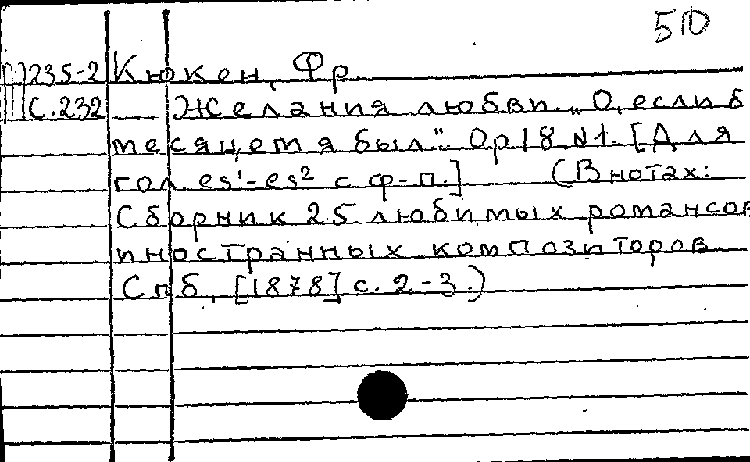 510
П235-2 Кюкен, Фр.
С.232 Желания любви. „О, если б
месяцем я был". Op18 №1. [Для
гол. es¹-es² с ф-п.] (В нотах:
Сборник 25 любимых романсов
иностранных композиторов.
Спб, [1878] с. 2-3.)